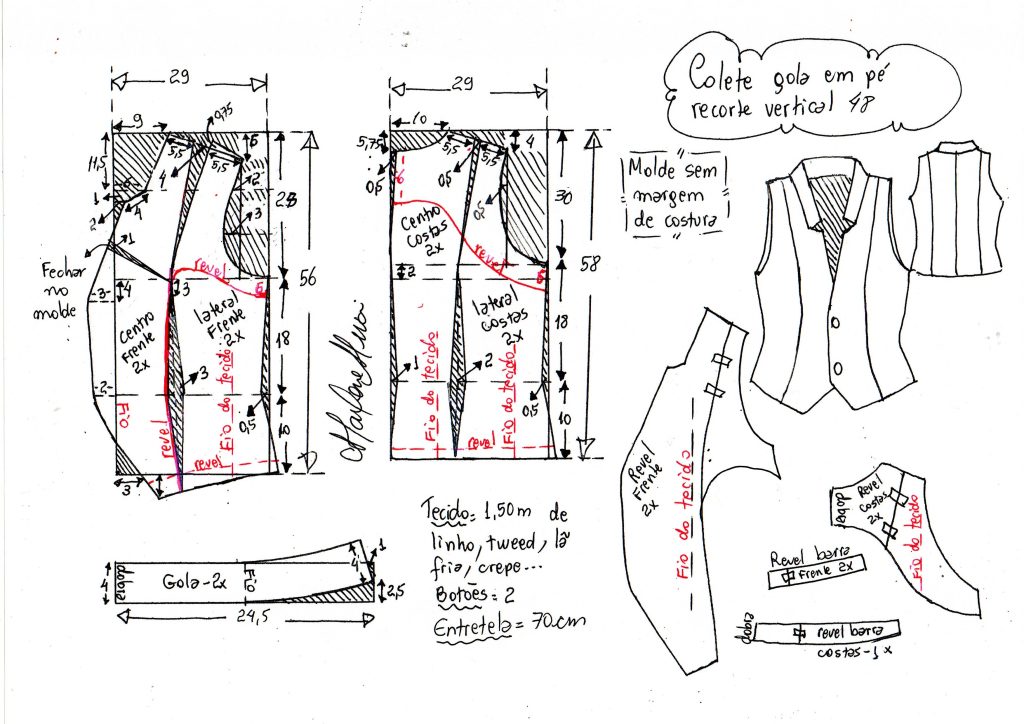 Colete gola em pé
recorte vertical 48
Molde sem
margem
de costura
29
9
0,75
11,5
5,5
5,5
6
4
2
1
4
2
3
1
28
56
Fechar
no
molde
3
4
3
revel
6
Centro
Frente
2x
lateral
Frente
2x
18
3
2
Fio
revel
Fio do tecido
0,5
10
revel
3
29
10
5,75
5,5
4
0,5
0,5
6
30
58
Centro
Costas
2x
revel
6
2
lateral
costas
2x
18
1
2
Fio do tecido
Fio do tecido
0,5
10
revel
dobra
4
Gola-2x
Fio
4
1
2,5
24,5
Tecido= 1,50m de
linho, tweed, lã
fria, crepe...
Botões= 2
Entretela= 70cm
Revel
Frente
2x
Fio do tecido
dobra
Revel
Costas
2x
Fio do tecido
Revel barra
Frente 2x
dobra
revel barra
costas-1x